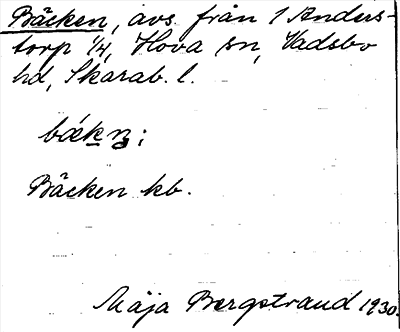 Bäcken, avs. från 1 Anders-
torp 1/4, Hova sn, Vadsbo
hd, Skarab. l.
bǽkn̥;
Bäcken kb.
Maja Bergstrand 1930.